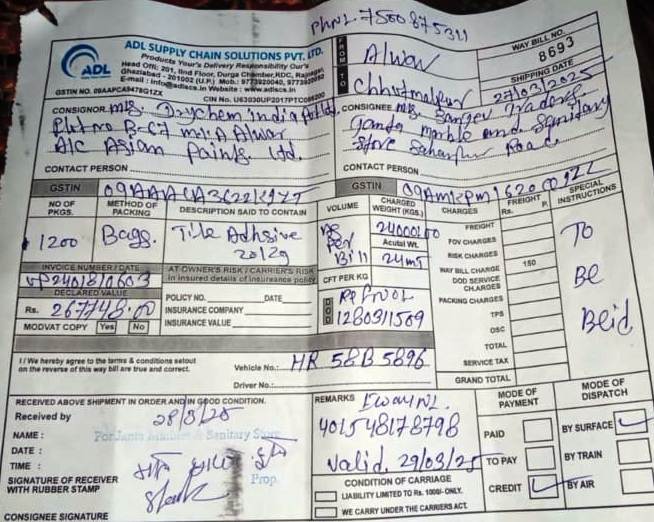 PHNL. 7500875311
ADL
ADL SUPPLY CHAIN SOLUTIONS PVT. LTD.
Products Your's Delivery Responsibility Our's
Head Offi: 201, IInd Floor, Durga Chamber, RDC, Rajnagar,
Ghaziabad - 201002 (U.P.) Mob.: 9773920040,
E-mail : info@adlscs.in Website : www.adlscs.in
GSTIN NO. 09AAPCA9478G1ZX
CIN No. U63030UP2017PTC098200
FROM
Alwar
TO
Chhutmalpur
WAY BILL NO.
8693
SHIPPING DATE
27/03/2025
CONSIGNOR M/s. Drychem india Pvt Ltd.
Plot no B-C7 Alwar
A/C Asian Paints. Ltd.
CONTACT PERSON
CONSIGNEE M/s. Traders
marble and Sanitary
store Road
CONTACT PERSON
GSTIN
GSTIN
NO OF PKGS.
METHOD OF PACKING
DESCRIPTION SAID TO CONTAIN
VOLUME
CHARGED WEIGHT (KGS.)
CHARGES
FREIGHT
Rs. P.
SPECIAL INSTRUCTIONS
1200
Bags.
Tile Adhsive
20kg
As Per Bill
24000/00
Acutal Wt.
24mt
FREIGHT
FOV CHARGES
RISK CHARGES
WAY BILL CHARGE 150
DOD SERVICE CHARGES
PACKING CHARGES
TPS
OSC
TOTAL
SERVICE TAX
GRAND TOTAL
To
Be
Beid
INVOICE NUMBER / DATE
DECLARED VALUE
Rs. 267748.00
MODVAT COPY Yes No
AT OWNER'S RISK / CARRIER'S RISK
In insured details of insureance policy
POLICY NO. DATE
INSURANCE COMPANY
INSURANCE VALUE
CFT PER KG
DOD
1280311509
I / We hereby agree to the terms & conditions setout
on the reverse of this way bill are true and correct.
Vehicle No.: HR 58B 5896
Driver No.:
RECEIVED ABOVE SHIPMENT IN ORDER AND IN GOOD CONDITION.
Received by
28/3/25
NAME :
DATE :
TIME :
SIGNATURE OF RECEIVER
WITH RUBBER STAMP
CONSIGNEE SIGNATURE
& Sanitary Store
Prop.
REMARKS EwayNL.
401548178798
valid. 29/03/25
CONDITION OF CARRIAGE
LIABILITY LIMITED TO Rs. 1000/- ONLY.
WE CARRY UNDER THE CARRIERS ACT.
MODE OF PAYMENT
PAID
TO PAY
CREDIT
MODE OF DISPATCH
BY SURFACE
BY TRAIN
BY AIR